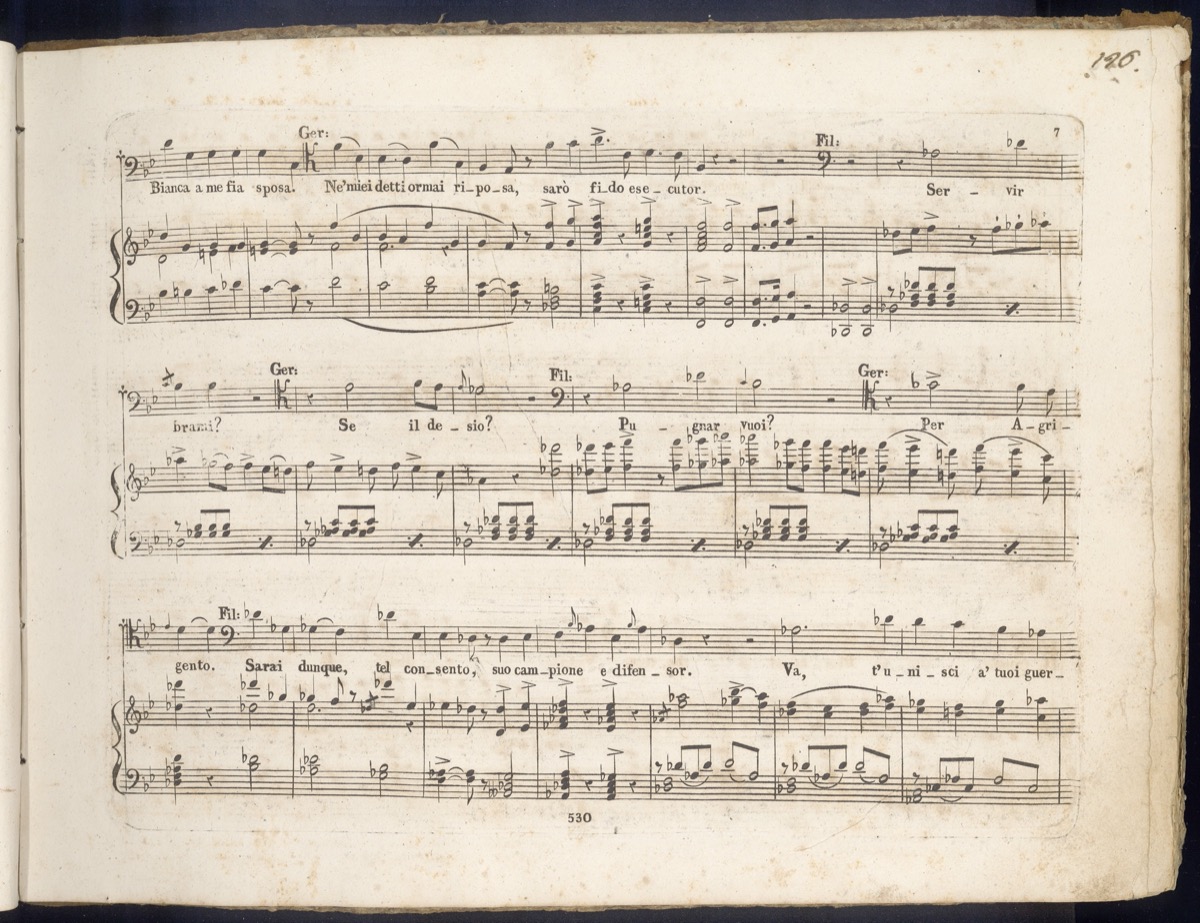 126.
7
Ger: Fil:
Bianca a me fia sposa. Ne' miei detti ormai ri_po_sa, sarò fi_do ese_cutor. Ser_vir
Ger: Fil: Ger:
brami? Se il de_sio? Pu_gnar vuoi? Per A_gri_
Fil:
gento. Sarai dunque, tel con_sento, suo cam_pione e difen_sor. Va, t'u_ni_sci a' tuoi guer_
530